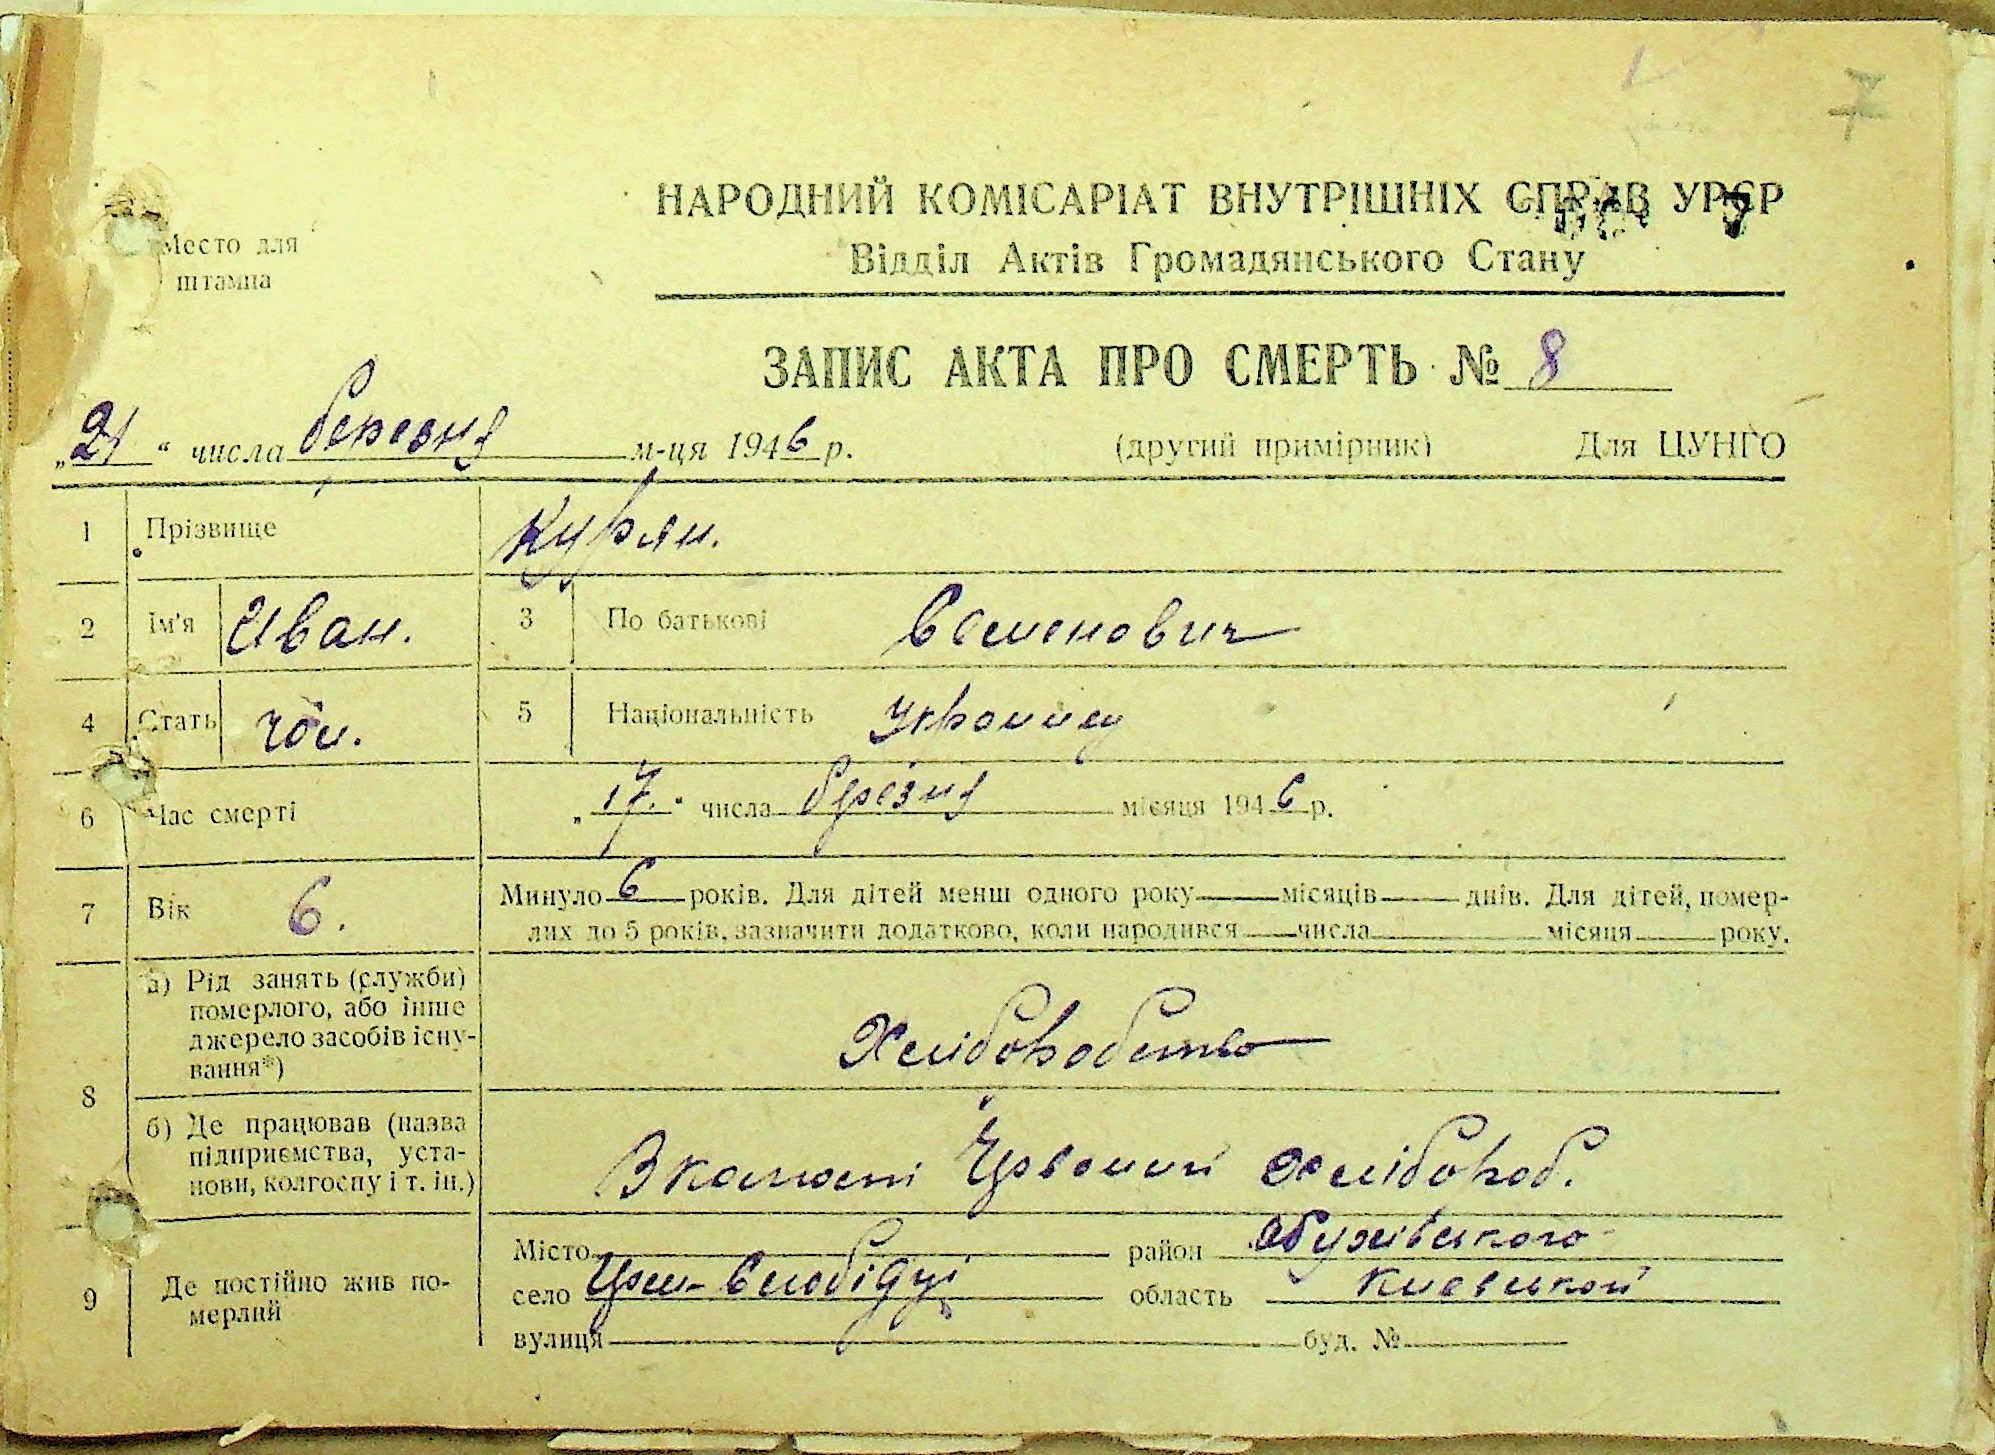 7
Место для
штампа
НАРОДНИЙ КОМІСАРІАТ ВНУТРІШНІХ СПРАВ УРСР
Відділ Актів Громадянського Стану
ЗАПИС АКТА ПРО СМЕРТЬ № 8
„21“ числа березня м-ця 1946 р. (другий примірник) Для ЦУНГО
1 Прізвище Курян.
2 Ім'я Иван. 3 По батькові Семенович
4 Стать чол. 5 Національність
6 Час смерті „17.“ числа березня місяця 1946 р.
7 Вік 6. Минуло 6 років. Для дітей менш одного року місяців днів. Для дітей, помер-
лих до 5 років, зазначити додатково, коли народився числа місяця року.
8 а) Рід занять (служби)
померлого, або інше
джерело засобів існу-
вання*)
Хліборобство
б) Де працював (назва
підприємства, уста-
нови, колгоспу і т. ін.)
В колгоспі Червоний Хлібороб.
9 Де постійно жив по-
мерлий
Місто район Обухівського
село Слобідці область Киевської
вулиця буд. №